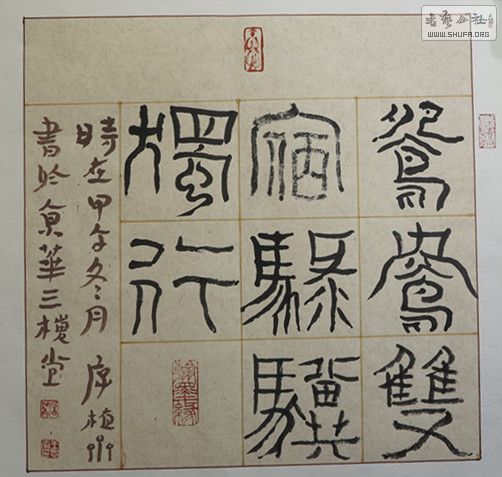 鴛鴦雙
宿騄驥
獨行
時在甲午冬月
書於京華三槐堂
书艺公社
WWW.SHUFA.ORG